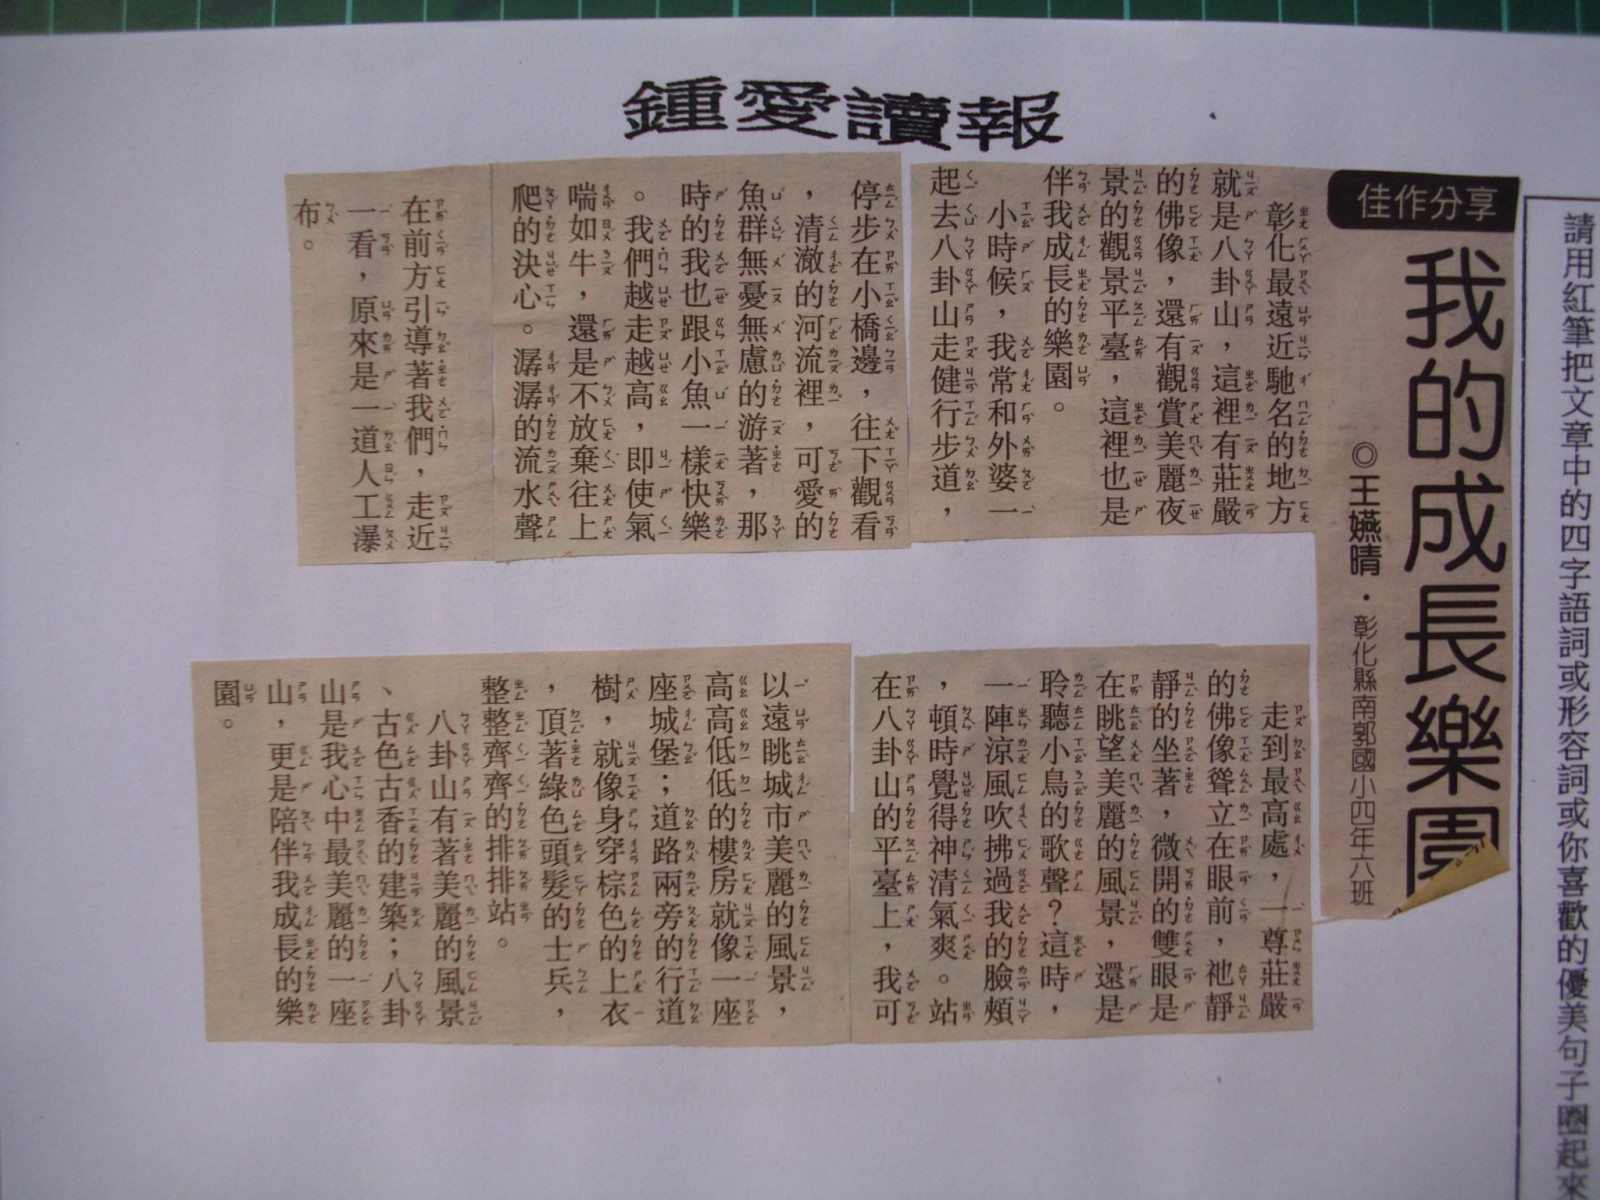 鍾愛讀報
請用紅筆把文章中的四字語詞或形容詞或你喜歡的優美句子圈起來
佳作分享
我的成長樂園
◎王嬿晴・彰化縣南郭國小四年六班
彰化最遠近馳名的地方
就是八卦山，這裡有莊嚴
的佛像，還有觀賞美麗夜
景的觀景平臺，這裡也是
伴我成長的樂園。
小時候，我常和外婆一
起去八卦山走健行步道，
停步在小橋邊，往下觀看
，清澈的河流裡，可愛的
魚群無憂無慮的游著，那
時的我也跟小魚一樣快樂
。我們越走越高，即使氣
喘如牛，還是不放棄往上
爬的決心。潺潺的流水聲
在前方引導著我們，走近
一看，原來是一道人工瀑
布。
走到最高處，一尊莊嚴
的佛像聳立在眼前，祂靜
靜的坐著，微開的雙眼是
在眺望美麗的風景，還是
聆聽小鳥的歌聲？這時，
一陣涼風吹拂過我的臉頰
，頓時覺得神清氣爽。站
在八卦山的平臺上，我可
以遠眺城市美麗的風景，
高高低低的樓房就像一座
座城堡；道路兩旁的行道
樹，就像身穿棕色的上衣
，頂著綠色頭髮的士兵，
整整齊齊的排排站。
八卦山有著美麗的風景
、古色古香的建築；八卦
山是我心中最美麗的一座
山，更是陪伴我成長的樂
園。